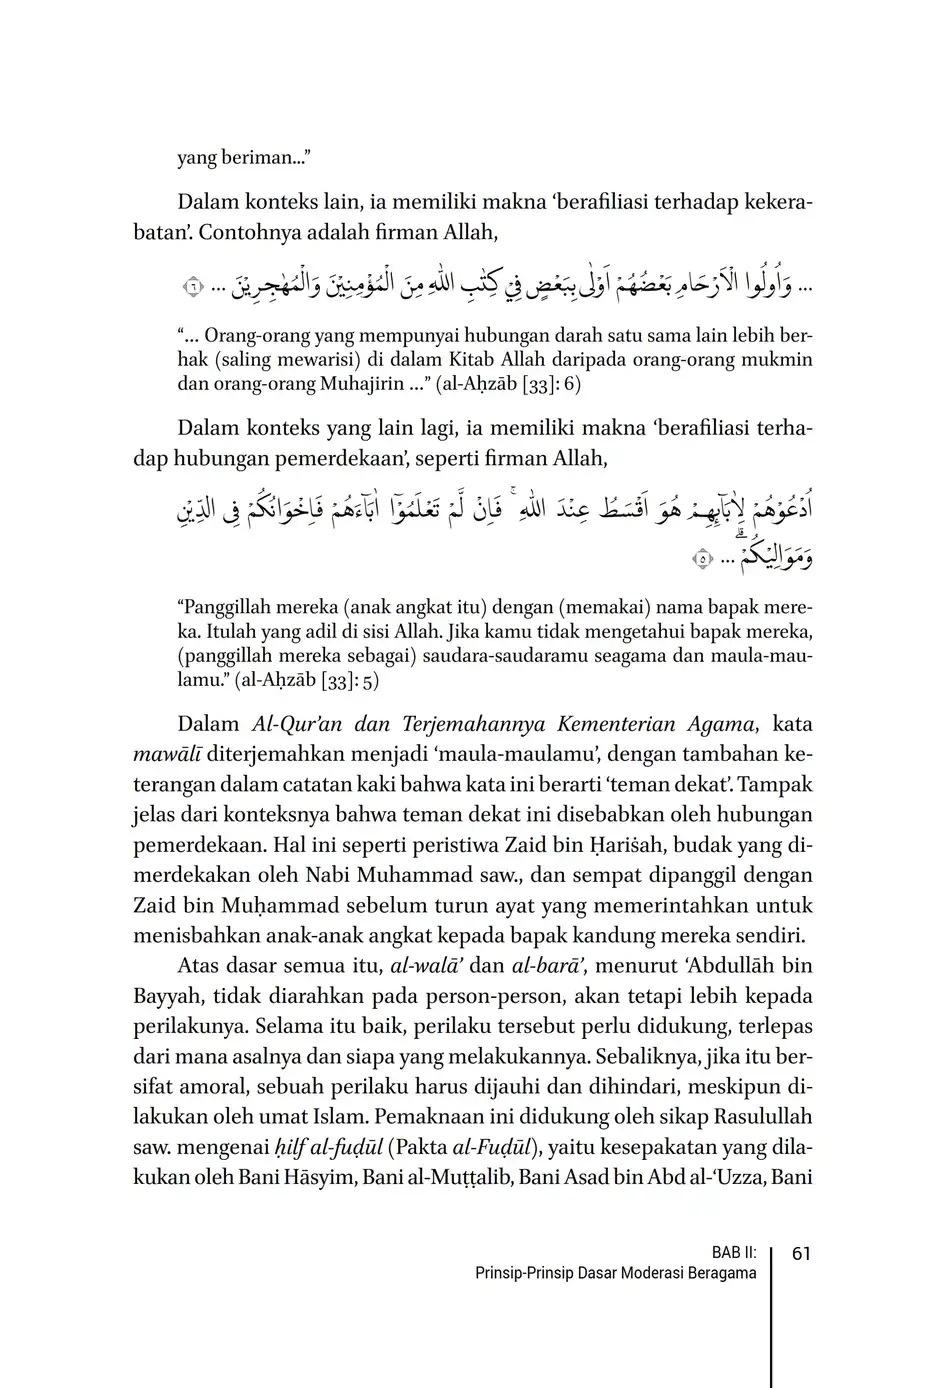 yang beriman...”
Dalam konteks lain, ia memiliki makna ‘berafiliasi terhadap kekera-
batan’. Contohnya adalah firman Allah,
... وَاُولُوا الْاَرْحَامِ بَعْضُهُمْ اَوْلٰى بِبَعْضٍ فِيْ كِتٰبِ اللّٰهِ مِنَ الْمُؤْمِنِيْنَ وَالْمُهٰجِرِيْنَ ... ۝٦
“... Orang-orang yang mempunyai hubungan darah satu sama lain lebih ber-
hak (saling mewarisi) di dalam Kitab Allah daripada orang-orang mukmin
dan orang-orang Muhajirin ...” (al-Aḥzāb [33]: 6)
Dalam konteks yang lain lagi, ia memiliki makna ‘berafiliasi terha-
dap hubungan pemerdekaan’, seperti firman Allah,
اُدْعُوْهُمْ لِاٰبَاۤىِٕهِمْ هُوَ اَقْسَطُ عِنْدَ اللّٰهِ ۚ فَاِنْ لَّمْ تَعْلَمُوْٓا اٰبَاۤءَهُمْ فَاِخْوَانُكُمْ فِى الدِّيْنِ
وَمَوَالِيْكُمْ ۗ ... ۝٥
“Panggillah mereka (anak angkat itu) dengan (memakai) nama bapak mere-
ka. Itulah yang adil di sisi Allah. Jika kamu tidak mengetahui bapak mereka,
(panggillah mereka sebagai) saudara-saudaramu seagama dan maula-mau-
lamu.” (al-Aḥzāb [33]: 5)
Dalam Al-Qur’an dan Terjemahannya Kementerian Agama, kata
mawālī diterjemahkan menjadi ‘maula-maulamu’, dengan tambahan ke-
terangan dalam catatan kaki bahwa kata ini berarti ‘teman dekat’. Tampak
jelas dari konteksnya bahwa teman dekat ini disebabkan oleh hubungan
pemerdekaan. Hal ini seperti peristiwa Zaid bin Ḥariṡah, budak yang di-
merdekakan oleh Nabi Muhammad saw., dan sempat dipanggil dengan
Zaid bin Muḥammad sebelum turun ayat yang memerintahkan untuk
menisbahkan anak-anak angkat kepada bapak kandung mereka sendiri.
Atas dasar semua itu, al-walā’ dan al-barā’, menurut ‘Abdullāh bin
Bayyah, tidak diarahkan pada person-person, akan tetapi lebih kepada
perilakunya. Selama itu baik, perilaku tersebut perlu didukung, terlepas
dari mana asalnya dan siapa yang melakukannya. Sebaliknya, jika itu ber-
sifat amoral, sebuah perilaku harus dijauhi dan dihindari, meskipun di-
lakukan oleh umat Islam. Pemaknaan ini didukung oleh sikap Rasulullah
saw. mengenai ḥilf al-fuḍūl (Pakta al-Fuḍūl), yaitu kesepakatan yang dila-
kukan oleh Bani Hāsyim, Bani al-Muṭṭalib, Bani Asad bin Abd al-‘Uzza, Bani
BAB II:
Prinsip-Prinsip Dasar Moderasi Beragama
61